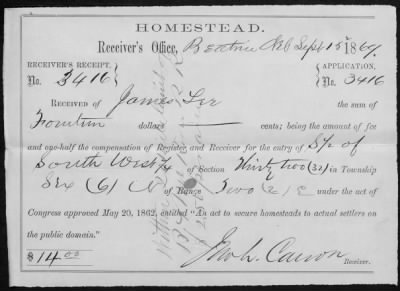 HOMESTEAD.
Receiver's Office, Beatrice Neb Sept 15 1869.
RECEIVER'S RECEIPT, APPLICATION,
No. 3416 No. 3416
RECEIVED OF James Lee the sum of
Fourteen dollars cents; being the amount of fee
and one-half the compensation of Register and Receiver for the entry of S/2 of
South West 1/4 of Section Thirty two (32) in Township
Six (6) N of Range Two (2) E under the act of
Congress approved May 20, 1862, entitled "An act to secure homesteads to actual settlers on
the public domain."
$14.00 Receiver.